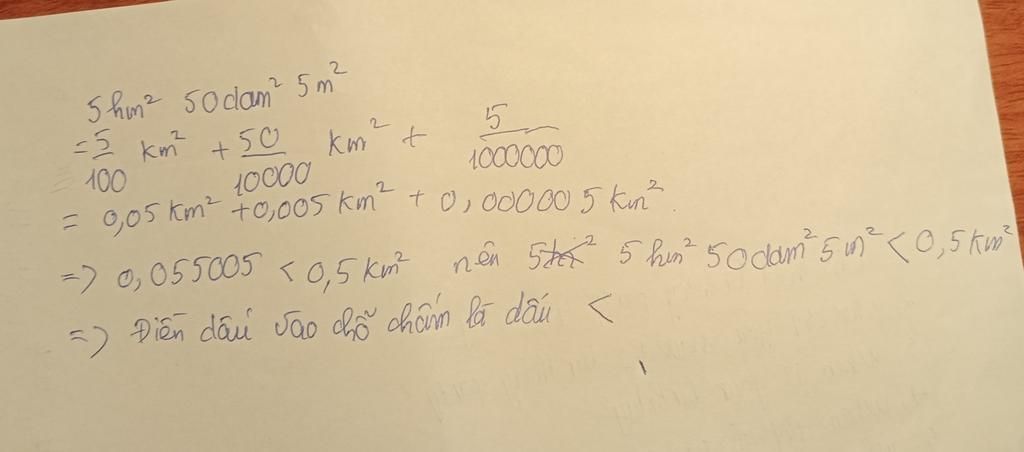 5hm² 50dam² 5m²
= 5/100 km² + 50/10000 km² + 5/1000000
= 0,05 km² + 0,005 km² + 0,000005 km².
=> 0,055005 < 0,5 km² nên 5 5hm² 50dam² 5m² < 0,5 km²
=> Điền dấu vào chỗ chấm là dấu <